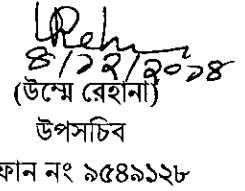 ৪/১২/২০১৪
(উম্মে রেহানা)
উপসচিব
ফোন নং ৯৫৪৯১২৮